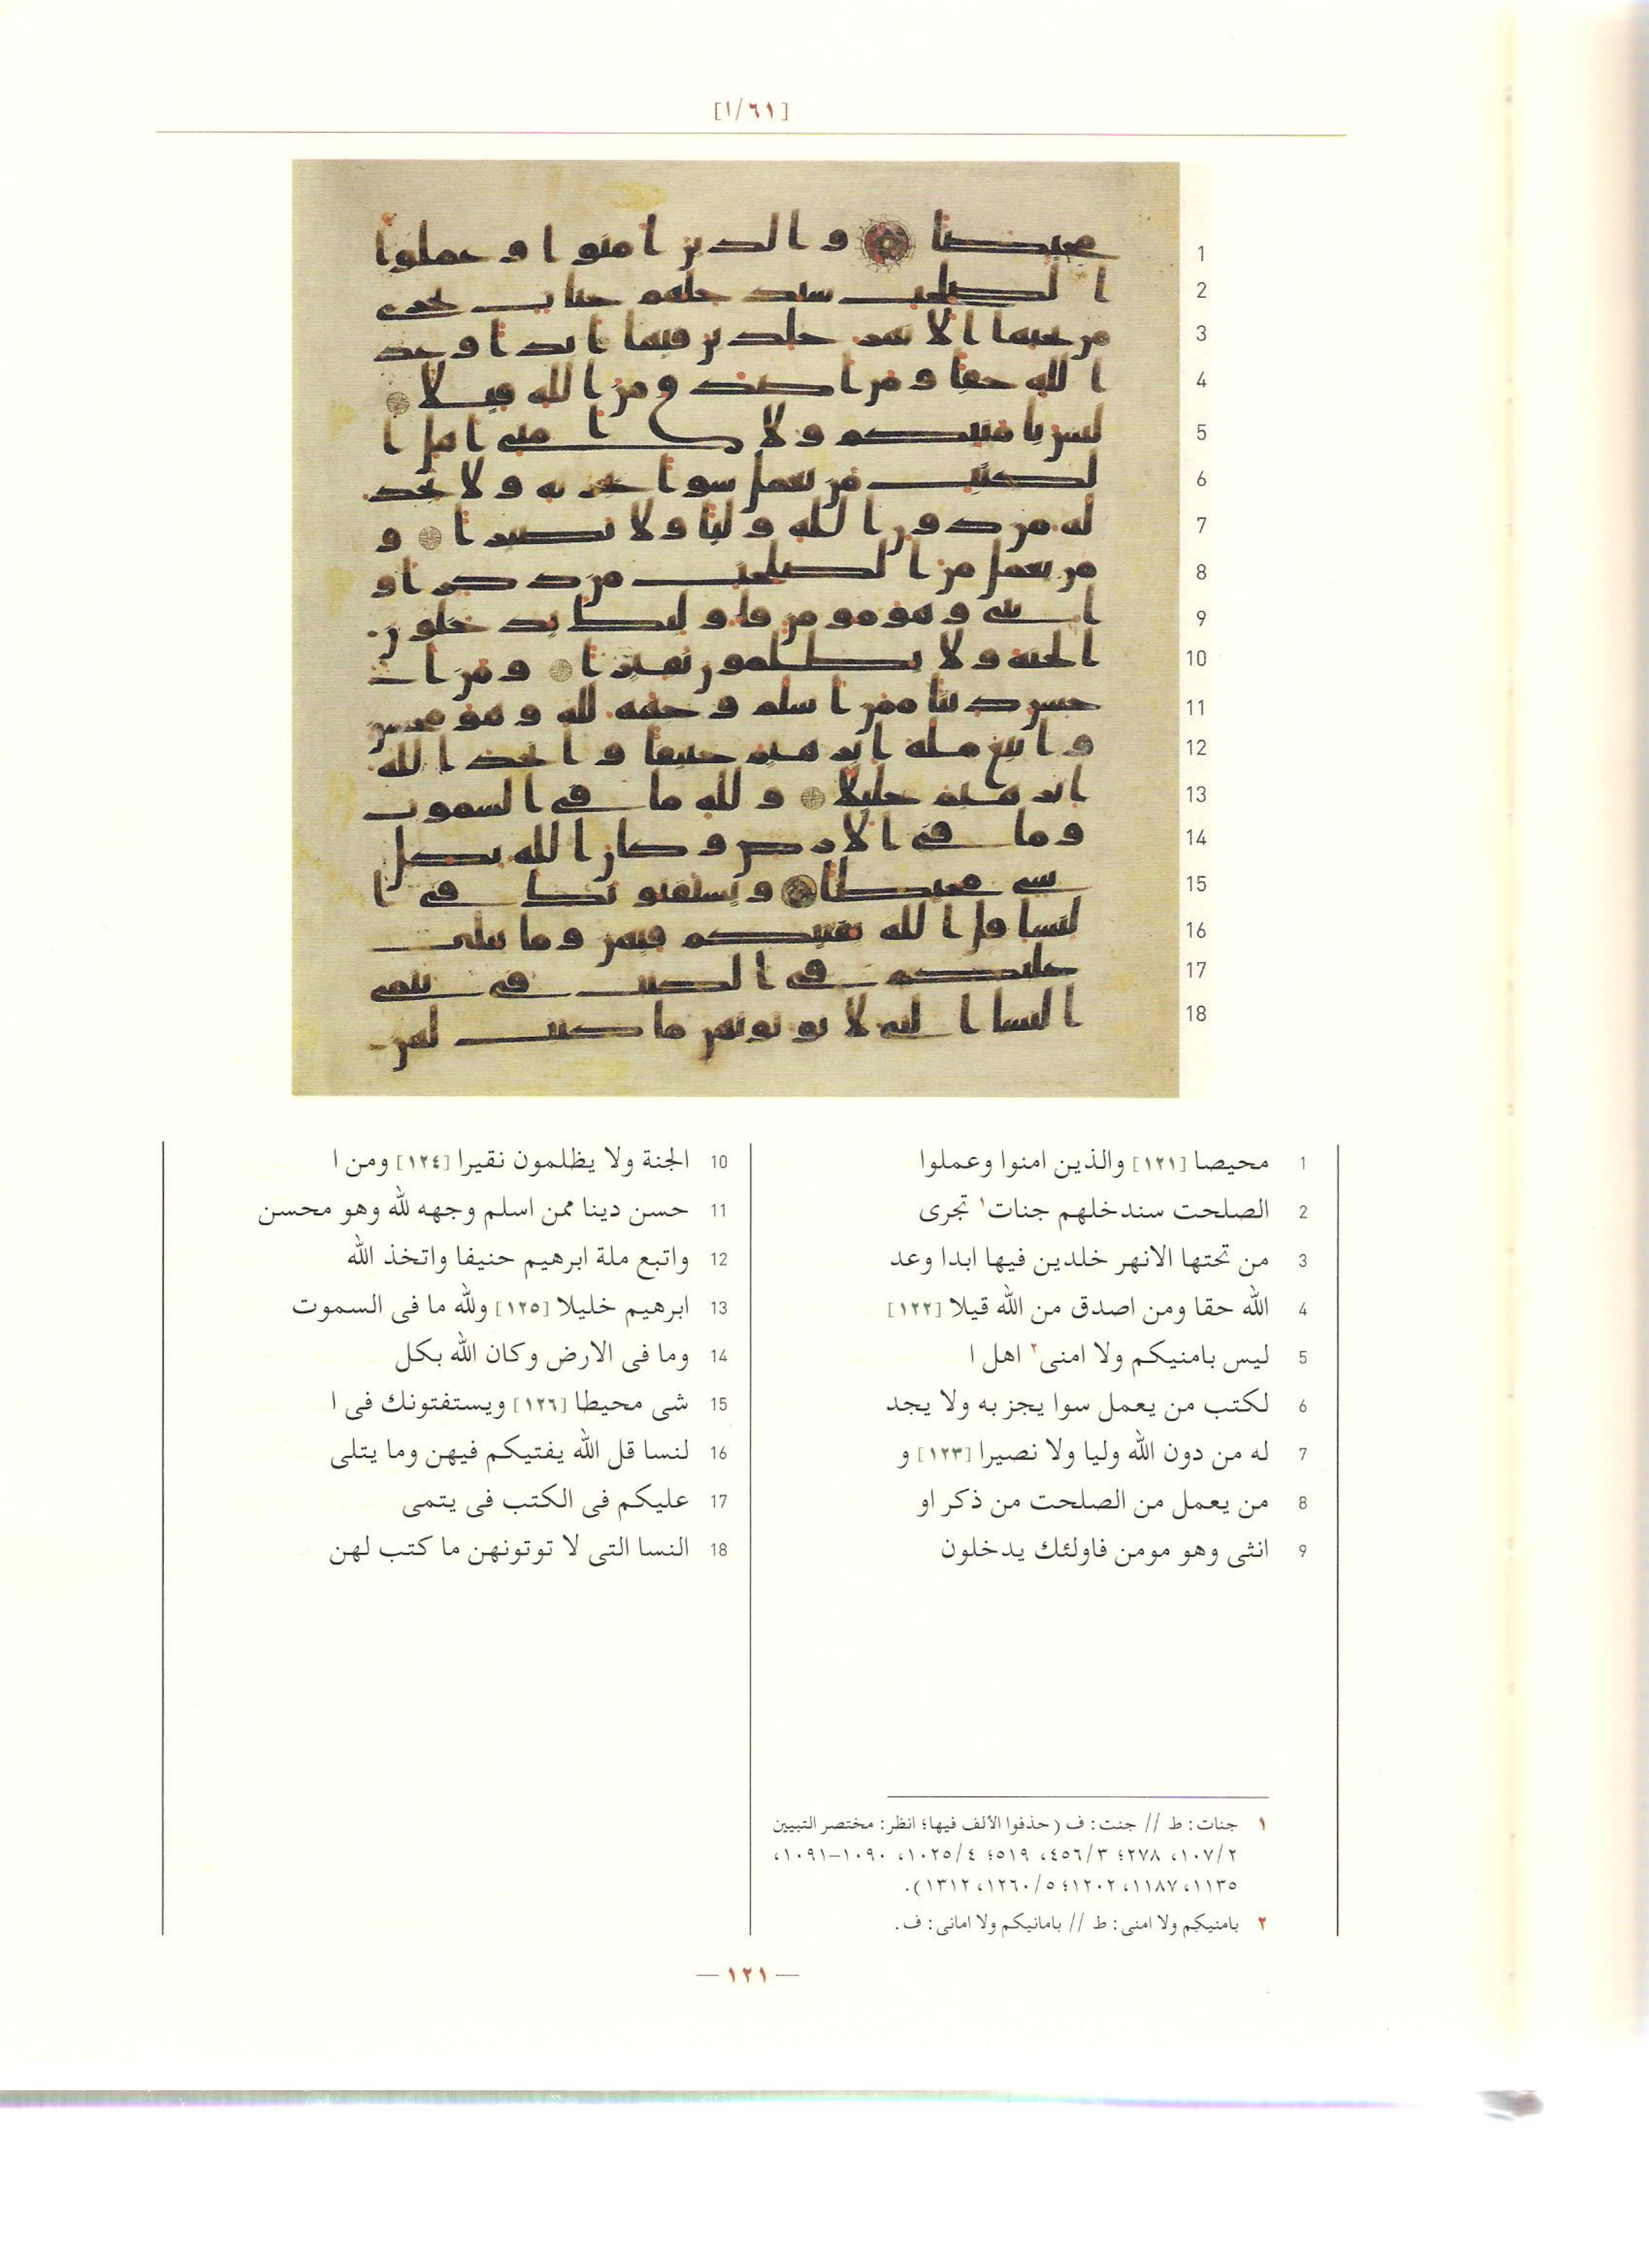 [١/٦١]
1 محيصا [١٢١] والذين امنوا وعملوا
2 الصلحت سندخلهم جنات١ تجرى
3 من تحتها الانهر خلدين فيها ابدا وعد
4 الله حقا ومن اصدق من الله قيلا [١٢٢]
5 ليس بامنيكم ولا امنى٢ اهل ا
6 لكتب من يعمل سوا يجز به ولا يجد
7 له من دون الله وليا ولا نصيرا [١٢٣] و
8 من يعمل من الصلحت من ذكر او
9 انثى وهو مومن فاولئك يدخلون
10 الجنة ولا يظلمون نقيرا [١٢٤] ومن ا
11 حسن دينا ممن اسلم وجهه لله وهو محسن
12 واتبع ملة ابرهيم حنيفا واتخذ الله
13 ابرهيم خليلا [١٢٥] ولله ما فى السموت
14 وما فى الارض وكان الله بكل
15 شى محيطا [١٢٦] ويستفتونك فى ا
16 لنسا قل الله يفتيكم فيهن وما يتلى
17 عليكم فى الكتب فى يتمى
18 النسا التى لا توتونهن ما كتب لهن
١ جنات: ط // جنت: ف (حذفوا الألف فيها؛ انظر: مختصر التبيين
١٠٧/٢، ٢٧٨؛ ٤٥٦/٣، ٥١٩؛ ١٠٢٥/٤، ١٠٩٠-١٠٩١،
١١٣٥، ١١٨٧، ١٢٠٢؛ ١٢٦٠/٥، ١٣١٢).
٢ بامنيكم ولا امنى: ط // بامانيكم ولا امانى: ف.
— ١٢١ —